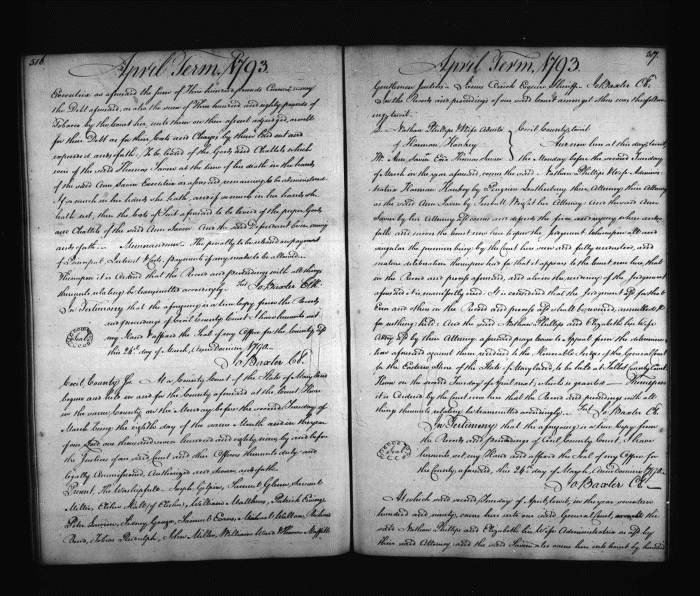 316
April Term, 1793.
Executrix as aforesaid the sum of Three hundred pounds Current money
the Debt aforesaid, as also the sum of Three hundred and eighty pounds of
Tobacco by the Court here, unto them on their assent adjudged, as well
for their Debt as for their Costs and Charges by them laid out and
expended and so forth, To be levied of the Goods and Chattels which
were of the said Thomas Savin at the time of his death in the hands
of the said Ann Savin Executrix as aforesaid, remaining to be administered
if so much in her hands she hath, and if so much in her hands she
hath not, then the Costs of Suit aforesaid to be levied of the proper Goods
and Chattels of the said Ann Savin And the said Defendant in mercy
and so forth Memorandum The penalty to be released on payment
of Principal Interest Costs, payments if any made to be allowed
Whereupon it is Ordered that the Record and proceedings with all things
thereunto relating be transmitted accordingly. Test Jo Baxter Clk.
In Testimony that the aforegoing is a true Copy from the Records
and proceedings of Cecil County Court I have hereunto set
my Hand & affixed the Seal of my Office for the County afd
this 24th day of March, Anno Domini 1790
Jo Baxter Clk.
Cecil County Ss. At a County Court of the State of Maryland
begun and held in and for the County aforesaid at the Court House
in the same County on the Monday before the second Tuesday of
March being the eighth day of the same Month and in the year
of our Lord one thousand seven hundred and eighty nine by and before
the Justices of our said Court and their Officers thereunto duly and
legally Commissioned, Authorized and chosen and so forth
Present The Worshipfull Joseph Gilpin, Samuel Glenn, Samuel
Miller, Elihu Hall (of Elisha), William Matthews, Patrick Ewing
Peter Sydney George, Samuel Evans, William
Tobias Rudulph, John Miller, William Ward Thomas Maffitt
317
April Term, 1793.
Gentlemen Justices Esquire Sheriff Jo Baxter Clk.
In the Record and proceedings of our said Court amongst others was the follow-
ing, to wit,
Nathan Phillips & Wife Admtx
of Harman Hankey
vs Ann Savin Exx Thomas Savin
Cecil County, to wit
Be it remembered here at this day, to wit,
the Monday before the second Tuesday
of March in the year aforesaid, come the said Nathan Phillips & Wife Adminis-
tratrix Harman Hankey by their Attorney
as the said Ann Savin by her Attorney And the said Ann
Savin by her Attorney afd comes and defends the force and injury when and so
forth and hereon the Court now here before the Judgment
singular the premises being by the Court here seen and fully understood, and
mature deliberation thereupon had for that it appears to the Court now here, that
in the Record and process aforesaid, and also in the rendering of the Judgment
aforesaid it is manifestly erred. It is considered that the Judgment afd for that
Error and others in the Record and process afd shall be reversed, annulled & set
for nothing held. And the said Nathan Phillips and Elizabeth his Wife
Admx afd by their Attorney aforesaid prays leave to Appeal from the determina-
tion aforesaid against them rendered to the Honorable Judges of the General Court
for the Eastern Shore of the State of Maryland, to be held at Talbot County Court
House on the second Tuesday of April next, which is granted Whereupon
it is Ordered by the Court now here that the Record and proceedings with all
things thereunto relating be transmitted accordingly. Test Jo Baxter Clk
In Testimony that the aforegoing is a true Copy from
the Records and proceedings of Cecil County Court, I have
hereunto set my Hand and affixed the Seal of my Office for the
County aforesaid, this 24th day of March, Anno Domini 1790
Jo Baxter Clk.
At which said second Tuesday of April, to wit, in the year seventeen
hundred and ninety, comes here into our said General Court, as well the
said Nathan Phillips and Elizabeth his Wife Administratrix as afd by
their said Attorney and the said Savin also comes here into Court by